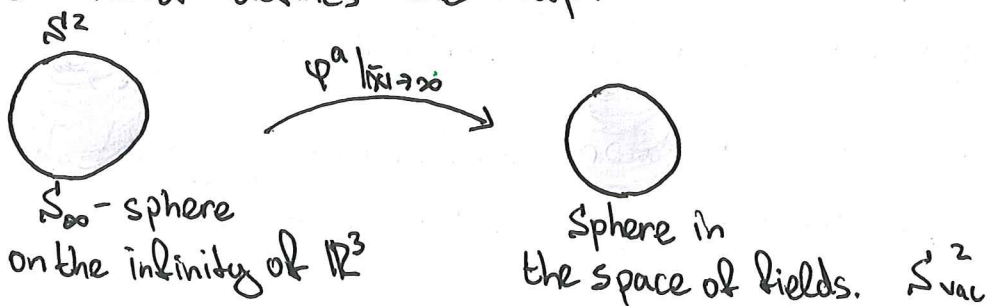 S²
φᵃ||x̄|→∞
S∞ - sphere
on the infinity of ℝ³
Sphere in
the space of fields. S²vac